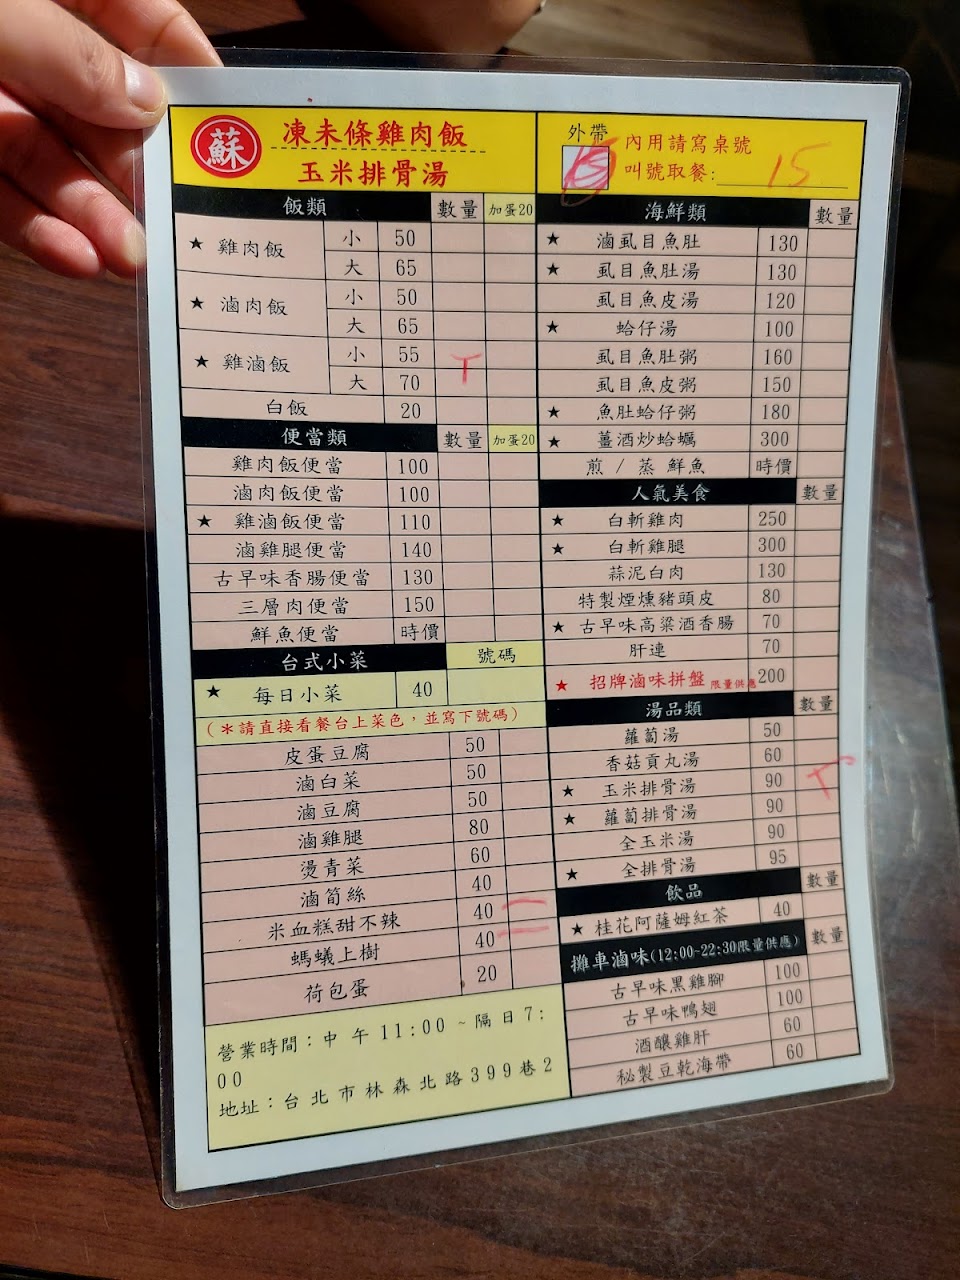 蘇
凍未條雞肉飯
玉米排骨湯
外帶
內用請寫桌號
叫號取餐: 15
飯類 數量 加蛋20
★ 雞肉飯 小 50
大 65
★ 滷肉飯 小 50
大 65
★ 雞滷飯 小 55
大 70
白飯 20
便當類 數量 加蛋20
雞肉飯便當 100
滷肉飯便當 100
★ 雞滷飯便當 110
滷雞腿便當 140
古早味香腸便當 130
三層肉便當 150
鮮魚便當 時價
台式小菜 號碼
★ 每日小菜 40
(*請直接看餐台上菜色，並寫下號碼)
皮蛋豆腐 50
滷白菜 50
滷豆腐 50
滷雞腿 80
燙青菜 60
滷筍絲 40
米血糕甜不辣 40
螞蟻上樹 40
荷包蛋 20
營業時間：中午11:00~隔日7:
00
地址：台北市林森北路399巷2
海鮮類 數量
★ 滷虱目魚肚 130
★ 虱目魚肚湯 130
虱目魚皮湯 120
★ 蛤仔湯 100
虱目魚肚粥 160
虱目魚皮粥 150
★ 魚肚蛤仔粥 180
★ 薑酒炒蛤蠣 300
煎 / 蒸 鮮魚 時價
人氣美食 數量
★ 白斬雞肉 250
★ 白斬雞腿 300
蒜泥白肉 130
特製煙燻豬頭皮 80
★ 古早味高粱酒香腸 70
肝連 70
★ 招牌滷味拼盤 限量供應 200
湯品類 數量
蘿蔔湯 50
香菇貢丸湯 60
★ 玉米排骨湯 90
★ 蘿蔔排骨湯 90
全玉米湯 90
★ 全排骨湯 95
飲品 數量
★ 桂花阿薩姆紅茶 40
攤車滷味(12:00~22:30限量供應) 數量
古早味黑雞腳 100
古早味鴨翅 100
酒釀雞肝 60
秘製豆乾海帶 60